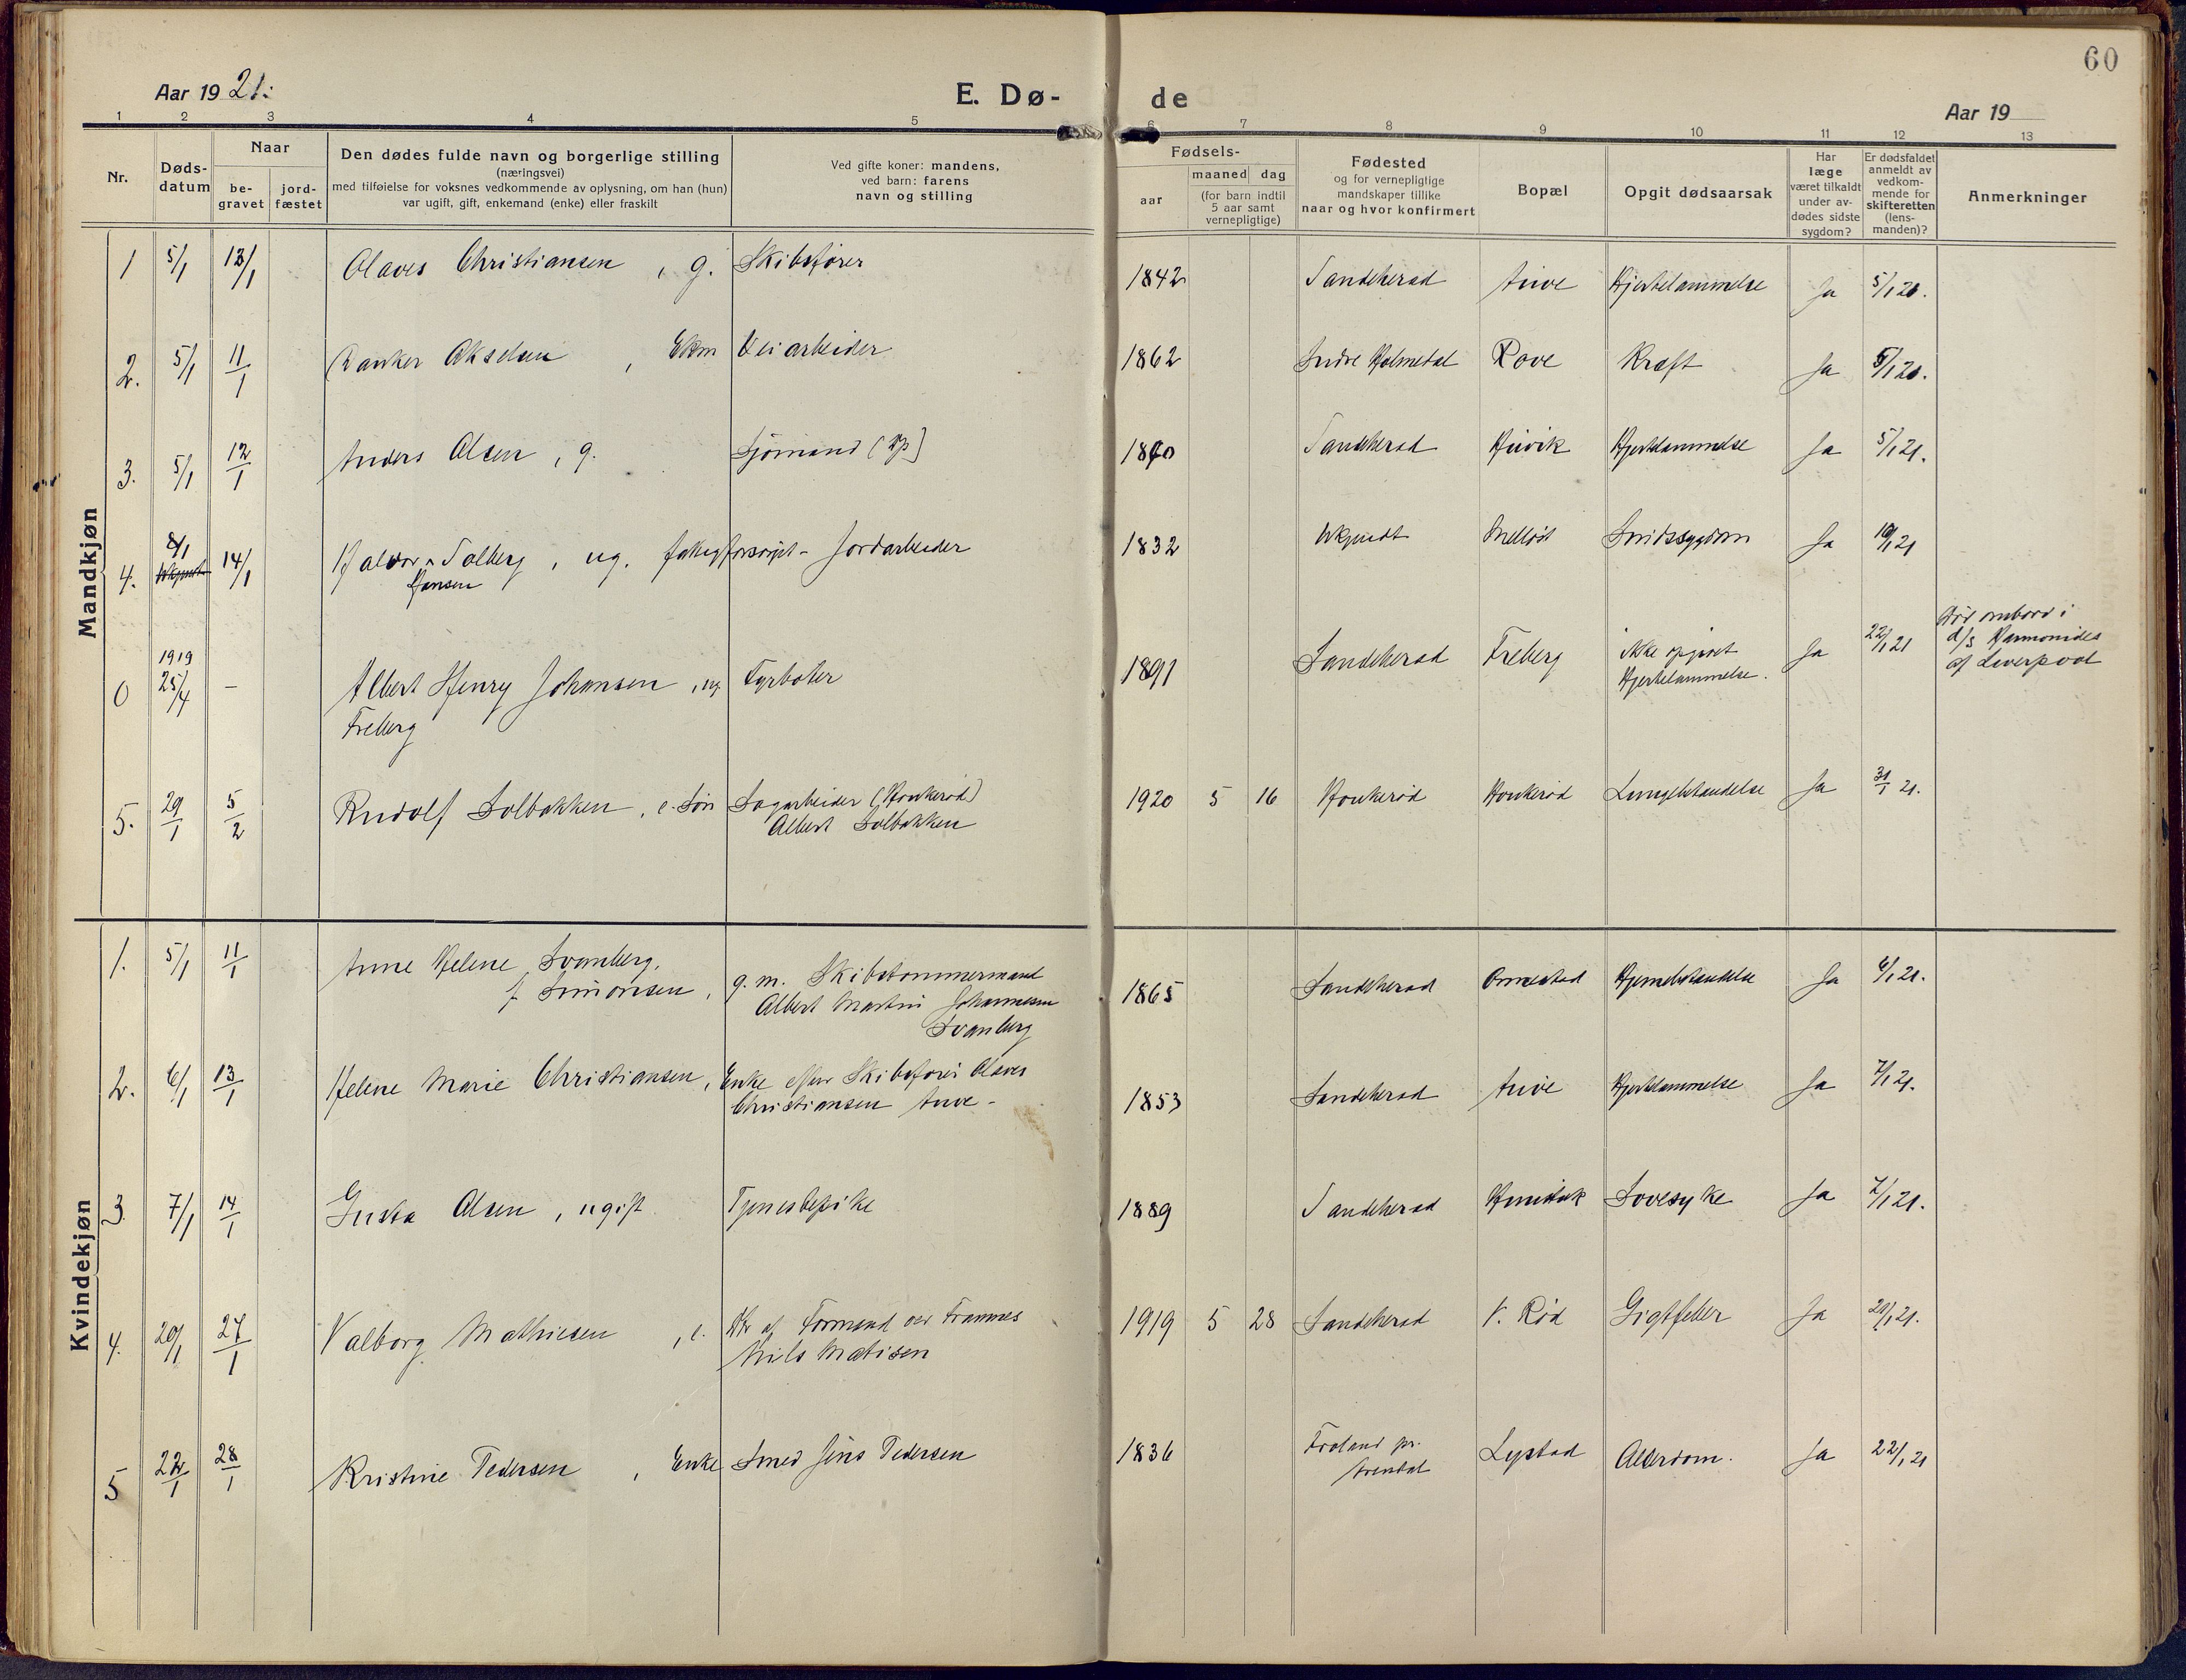 60
Aar 19 21.
E. Dø-
de
Aar 19
1 2 3 4 5 6 7 8 9 10 11 12 13
Nr.
Døds-
datum
Naar
be-
gravet
jord-
fæstet
Den dødes fulde navn og borgerlige stilling
(næringsvei)
med tilføielse for voksnes vedkommende av oplysning, om han (hun)
var ugift, gift, enkemand (enke) eller fraskilt
Ved gifte koner: mandens,
ved barn: farens
navn og stilling
Fødsels-
aar
maaned dag
(for barn indtil
5 aar samt
vernepligtige)
Fødested
og for vernepligtige
mandskaper tillike
naar og hvor konfirmert
Bopæl
Opgit dødsaarsak
Har
læge
været tilkaldt
under av-
dødes sidste
sygdom?
Er dødsfaldet
anmeldt av
vedkom-
mende for
skifteretten
(lens-
manden)?
Anmerkninger
Mandkjøn
1 5/1 13/1 Olaves Christiansen, g. Skibsfører 1842 Sandeherad Hjertelammelse Ja 5/1 21.
2. 5/1 11/1 Akselsen, Ekm Veiarbeider 1862 Indre Holmedal Rove Kræft Ja 5/1 21.
3. 5/1 12/1 Anders Olsen, g. Sjømand Sandeherad Hjertelammelse Ja 5/1 21.
4. 8/1 14/1 Halvor Solberg, ug. fattigforsørget - Jordarbeider 1832 Ukjendt Sindssygdom Ja 10/1 21
Hansen
0 1919 25/4 — Albert Henry Johansen, ug Fyrbøter 1891 Sandeherad Freberg ikke opgivet Ja 22/1 21 Død ombord i
Freberg Hjertelammelse. d/s Harmonides
af Liverpool
5. 29/1 5/2 Rudolf Solbakken, e. Søn Sagarbeider (Haukerød) 1920 5 16 Haukerød Haukerød Lungebetændelse Ja 31/1 21.
Albert Solbakken
Kvindekjøn
1. 5/1 11/1 Anne Helene Svanberg,
f. Simonsen, g. m. Skibstømmermand 1865 Sandeherad Ormestad Hjernebetændelse Ja 6/1 21.
Albert Martin Johannesen
Svanberg
2. 6/1 13/1 Helene Marie Christiansen, Enke efter Skibsfører Olaves 1853 Sandeherad Hjertelammelse Ja 7/1 21.
Christiansen
3 7/1 14/1 Gusta Olsen, ugift Tjenestepike 1889 Sandeherad Sovesyke Ja 7/1 21.
4. 20/1 27/1 Valborg Mathisen, e. Dtr af Formand ved Framnes 1919 5 28 Sandeherad V. Rød Gigtfeber Ja 21.
Nils Matisen
5 22/1 28/1 Kristine Pedersen, Enke Smed Jens Pedersen 1836 Froland pr. Lystad Alderdom. Ja 22/1 21
Arendal